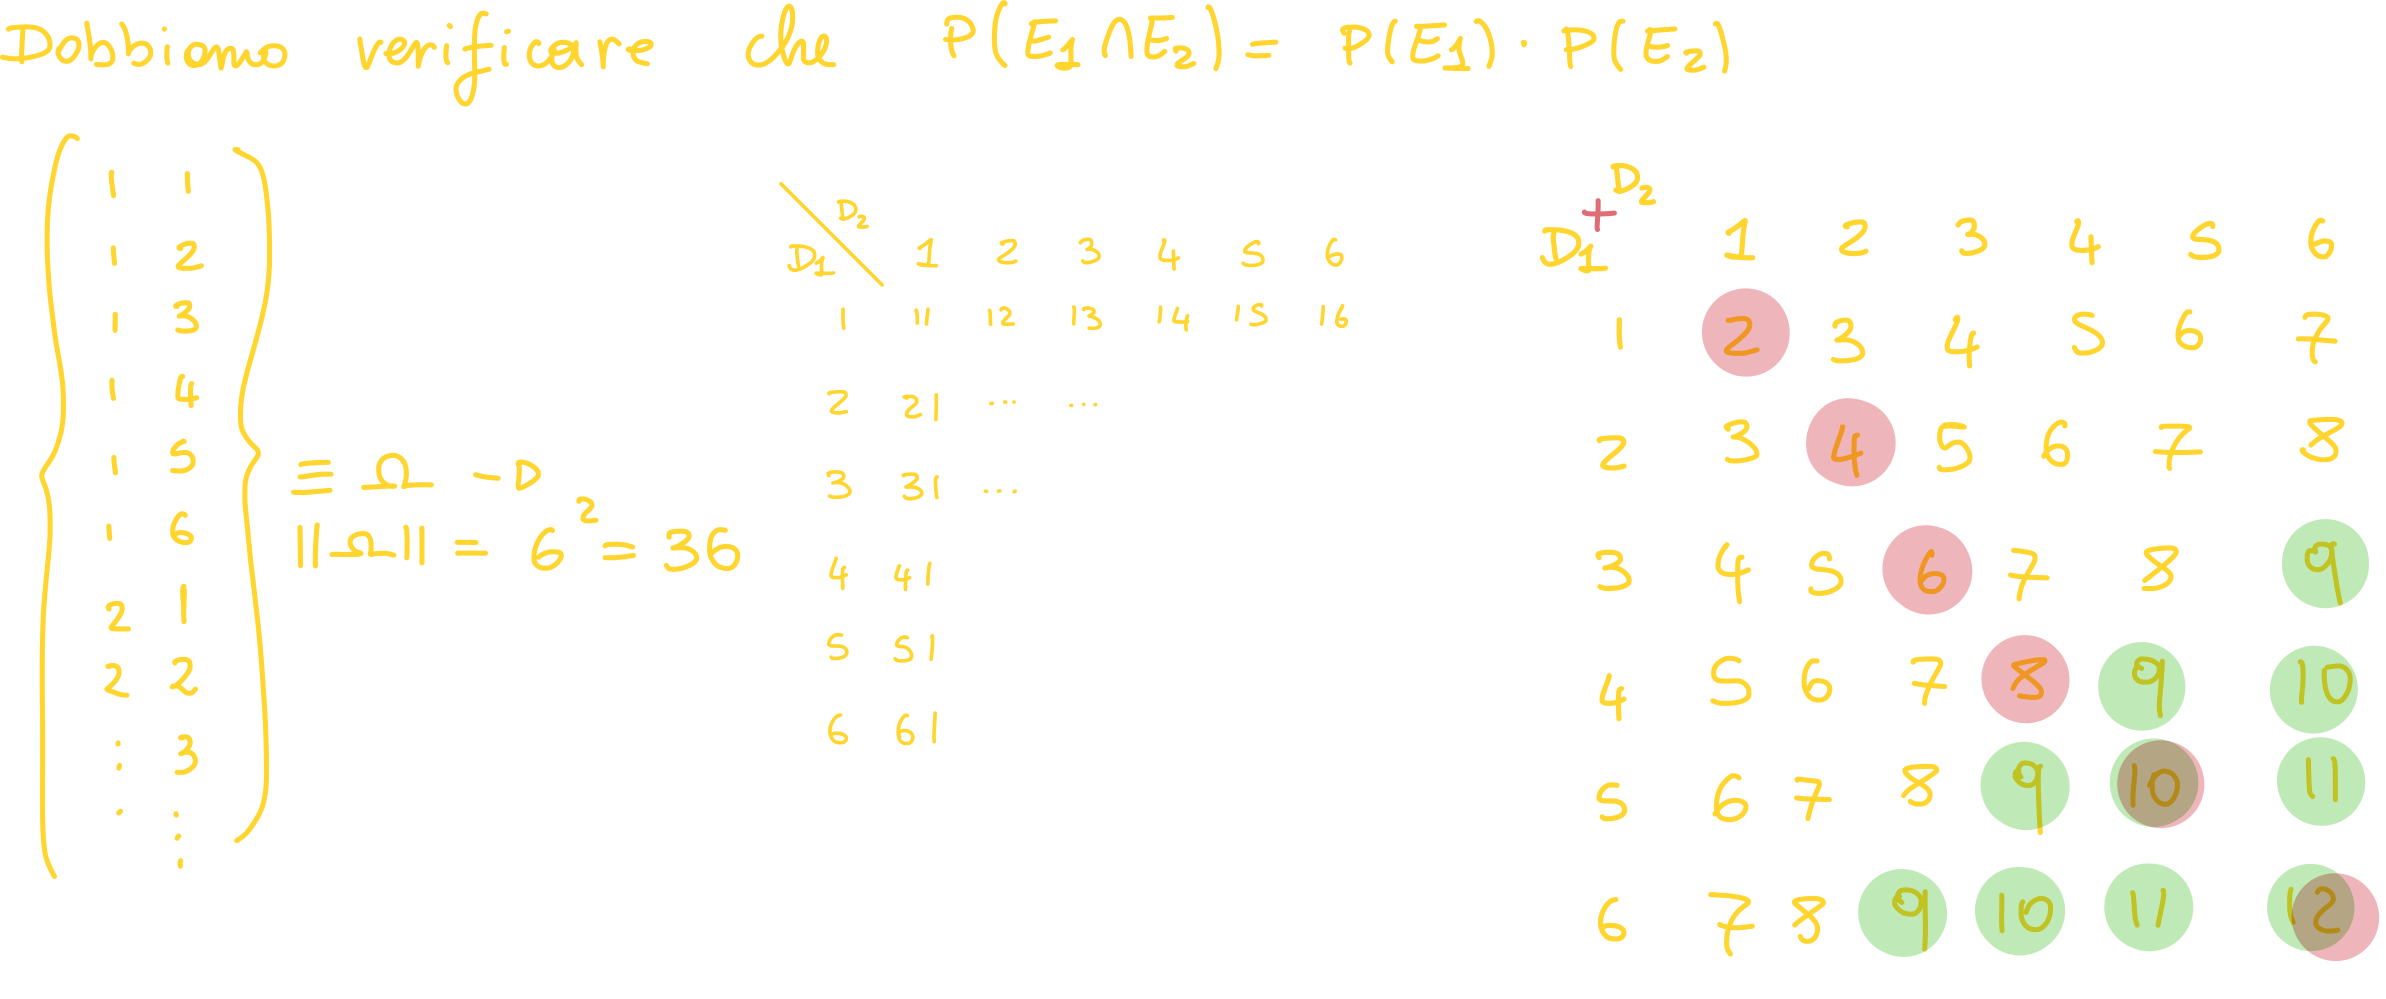 Dobbiamo verificare che P(E1 ∩ E2) = P(E1) · P(E2)
1 1
1 2
1 3
1 4
1 5
1 6
2 1
2 2
: 3
. :
≡ Ω →
||Ω|| = 6² = 36
D2
D1 1 2 3 4 5 6
1 11 12 13 14 15 16
2 21 ... ...
3 31 ...
4 41
5 51
6 61
+ D2
D1 1 2 3 4 5 6
1 2 3 4 5 6 7
2 3 4 5 6 7 8
3 4 5 6 7 8 9
4 5 6 7 8 9 10
5 6 7 8 9 10 11
6 7 8 9 10 11 12